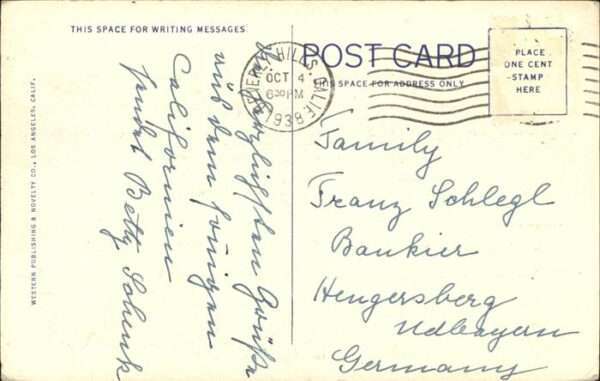 THIS SPACE FOR WRITING MESSAGES
POST CARD
THIS SPACE FOR ADDRESS ONLY
PLACE
ONE CENT
STAMP
HERE
HILLS, CALIF.
OCT 4
6 30 PM
1936
WESTERN PUBLISHING & NOVELTY CO., LOS ANGELES, CALIF.
Die herzlichsten Grüße
aus dem sonnigen
Californien
sendet Betty Schenk
Family
Franz Schlegl
Bankier
Hengersberg
Ndbayern
Germany